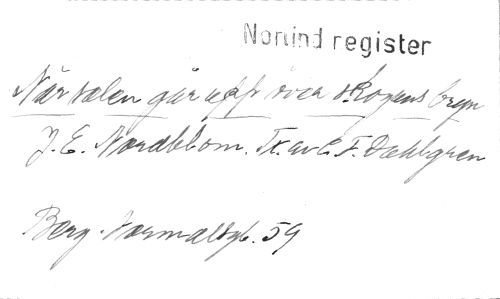 Norlind register
När solen går upp över skogens bryn
J. E. Nordblom. Tx. av C. F. Dahlgren
Berg. Normalsgb. 59